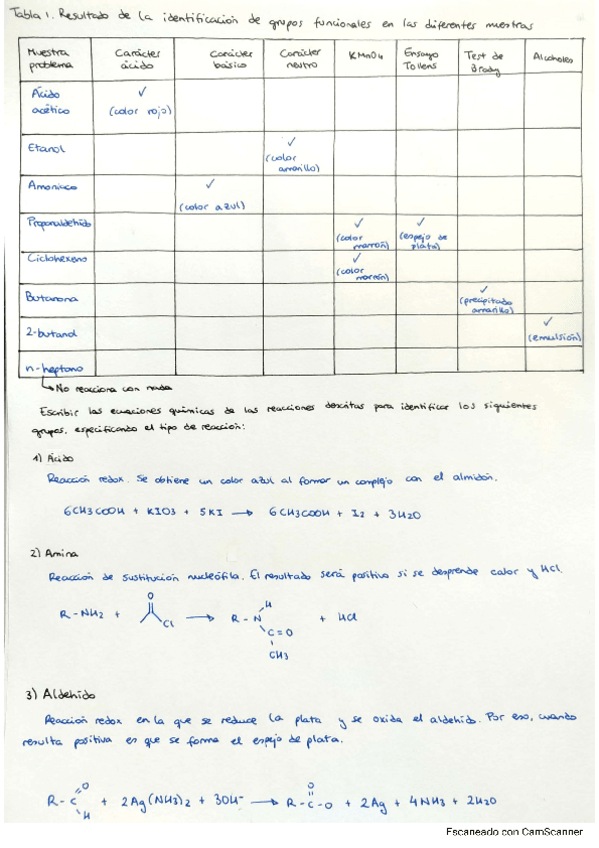 Tabla 1. Resultado de la identificación de grupos funcionales en las diferentes muestras
Muestra problema | Carácter ácido | Carácter básico | Carácter neutro | KMnO4 | Ensayo Tollens | Test de Brady | Alcoholes
Ácido acético | ✓ (color rojo)
Etanol | ✓ (color amarillo)
Amoniaco | ✓ (color azul)
Propanaldehído | ✓ (color marrón) | ✓ (espejo de plata)
Ciclohexeno | ✓ (color marrón)
Butanona | ✓ (precipitado amarillo)
2-butanol | ✓ (emulsión)
n-heptano
↳ No reacciona con nada
Escribir las ecuaciones químicas de las reacciones descritas para identificar los siguientes
grupos, especificando el tipo de reacción:
1) Ácido
Reacción redox. Se obtiene un color azul al formar un complejo con el almidón.
6CH3COOH + KIO3 + 5KI → 6CH3COOH + I2 + 3H2O
2) Amina
Reacción de sustitución nucleófila. El resultado será positivo si se desprende calor y HCl.
R-NH2 + O Cl → R-N H C=O CH3 + HCl
3) Aldehído
Reacción redox en la que se reduce la plata y se oxida el aldehído. Por eso, cuando
resulta positiva es que se forma el espejo de plata.
R-C O H + 2Ag(NH3)2 + 3OH⁻ → R-C-O O + 2Ag + 4NH3 + 2H2O
Escaneado con CamScanner